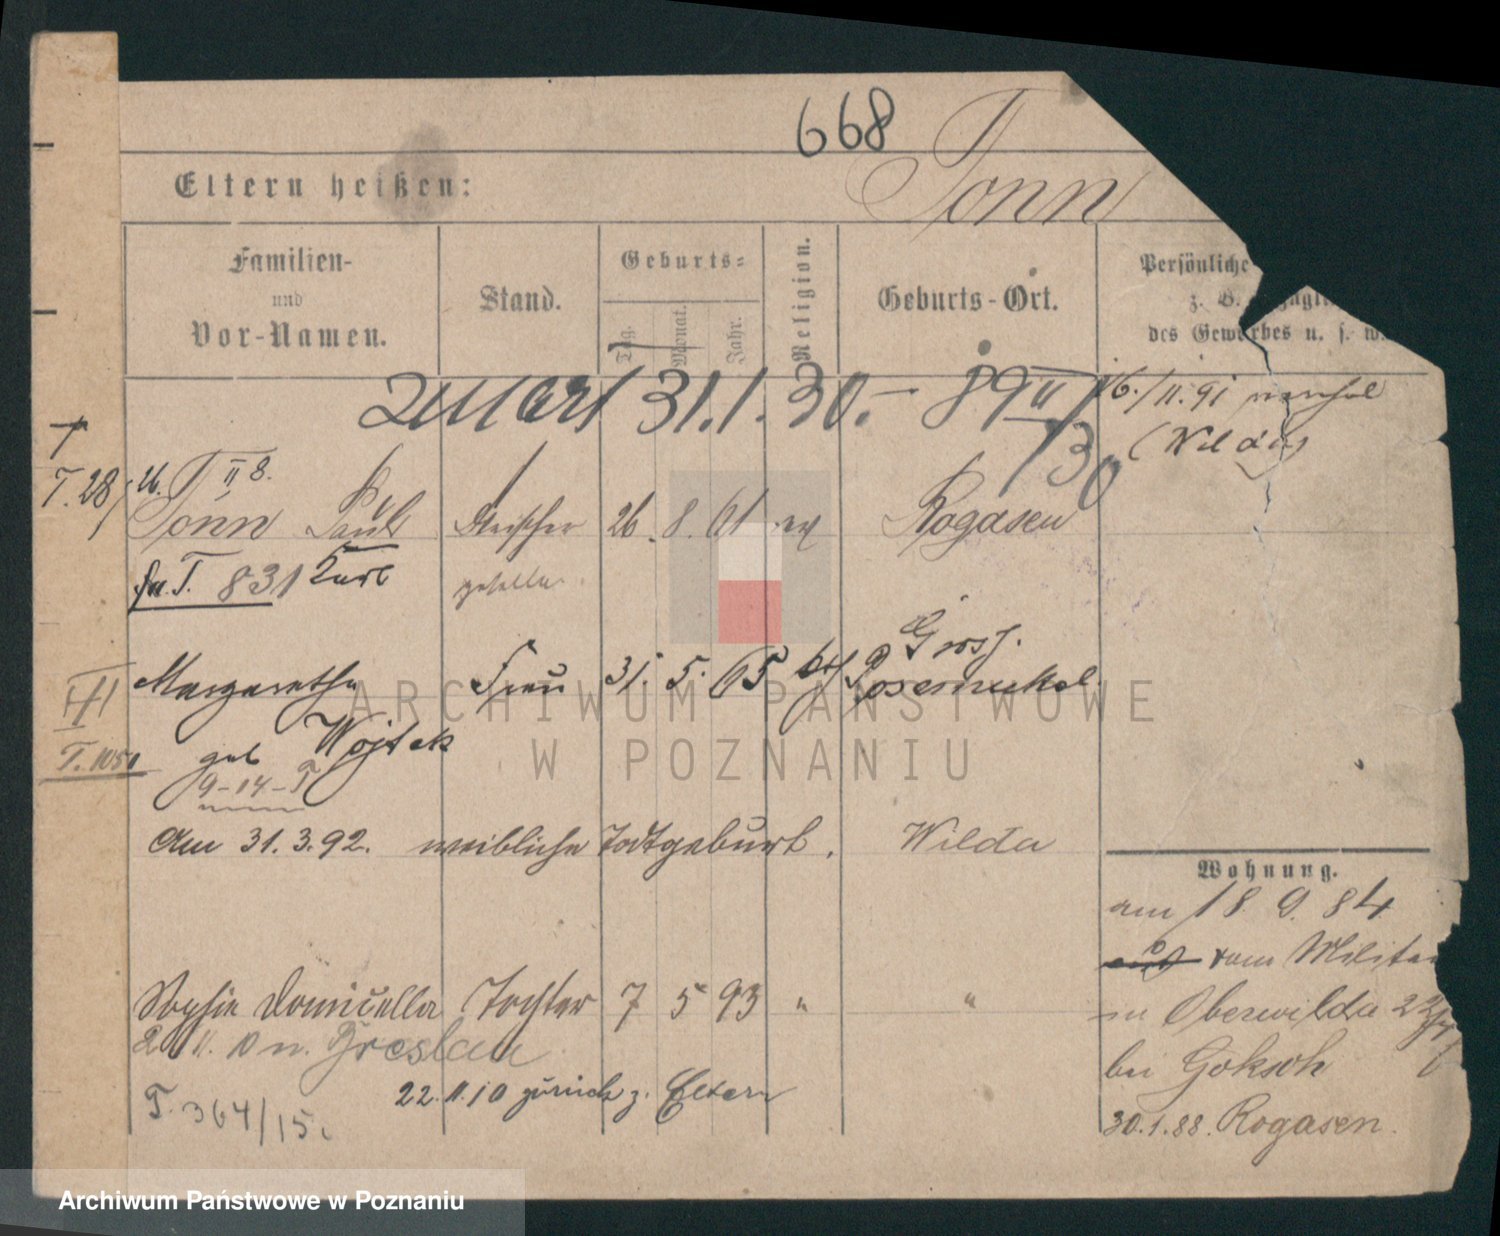 668
Tonn
Eltern heißen:
Familien- und Vor-Namen.
Stand.
Geburts-
Tag.
Monat.
Jahr.
Religion.
Geburts-Ort.
Persönliche
z. B.
des Gewerbes u. s. w.
31.1.30.- 89 II/30
16./11.91
(Wilda)
T. 28/
26. T II 8.
Tonn Paul Fleischer 26. 8. 61 ev Rogasen
fr. T. 831 Kurt geselle
Margarethe Frau 31. 5. 65 kth Grosf.
Posemukel.
T. 1051
geb Wojtek
9-14-T
Am 31.3.92. weibliche Todtgeburt. Wilda
Wohnung.
am 18 9. 84
aus vom Militär
in Oberwilda
bei Goksch
30.1.88. Rogasen.
Sophie Domicella Tochter 7 5 93 " "
2. 11. 10 n. Breslau
22.11.10 zurück z. Eltern
T. 364/15.
ARCHIWUM PAŃSTWOWE
W POZNANIU
Archiwum Państwowe w Poznaniu